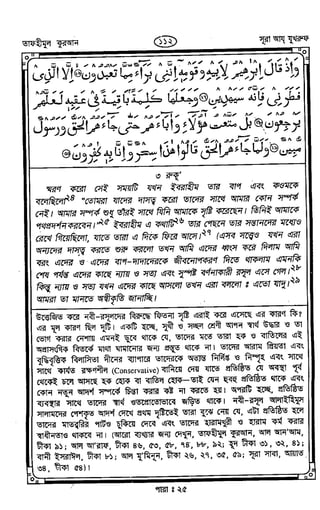 তাফহীমুল কুরআন
১১২
সূরা আয্ যুখরুফ
وَإِذْ قَالَ إِبْرٰهِيْمُ لِأَبِيْهِ وَقَوْمِهٖٓ إِنَّنِيْ بَرَآءٌ مِّمَّا تَعْبُدُوْنَ ۝ إِلَّا الَّذِيْ
فَطَرَنِيْ فَإِنَّهٗ سَيَهْدِيْنِ ۝ وَجَعَلَهَا كَلِمَةً بَاقِيَةً فِيْ عَقِبِهٖ لَعَلَّهُمْ
يَرْجِعُوْنَ ۝ بَلْ مَتَّعْتُ هٰٓؤُلَآءِ وَاٰبَآءَهُمْ حَتّٰى جَآءَهُمُ الْحَقُّ وَرَسُوْلٌ
مُّبِيْنٌ ۝ وَلَمَّا جَآءَهُمُ الْحَقُّ قَالُوْا هٰذَا سِحْرٌ وَّإِنَّا بِهٖ كٰفِرُوْنَ ۝
৩ রুকূ'
স্মরণ করো সেই সময়টি যখন ইবরাহীম তার বাপ এবং কওমকে
বলেছিলো২৪ "তোমরা যাদের দাসত্ব করো তাদের সাথে আমার কোন সম্পর্ক
নেই। আমার সম্পর্ক শুধু তাঁরই সাথে যিনি আমাকে সৃষ্টি করেছেন। তিনিই আমাকে
পথপ্রদর্শন করবেন।"২৫ ইবরাহীম এ কথাটি২৬ তার পেছনে তার সন্তানদের মধ্যেও
রেখে গিয়েছিলো, যাতে তারা এ দিকে ফিরে আসে।২৭ (এসব সত্ত্বেও যখন এরা
অন্যদের দাসত্ব করতে শুরু করলো তখন আমি এদের ধ্বংস করে দিলাম আমি
বরং এদের ও এদের বাপ-দাদাদেরকে জীবনোপকরণ দিতে থাকলাম এমনকি
শেষ পর্যন্ত এদের কাছে ন্যায় ও সত্য এবং সুস্পষ্ট বর্ণনাকারী রসূল এসে গেল।২৮
কিন্তু ন্যায় ও সত্য যখন এদের কাছে আসলো তখন এরা বললো ঃ এতো যাদু।২৯
আমরা তা মানতে অস্বীকৃতি জানাচ্ছি।
উত্তেজিত করে নবী-রসূলদের বিরুদ্ধে ফিতনা সৃষ্টি এরাই করে এসেছে এর কারণ কি?
এর মূল কারণ ছিল দুটি। একটি হচ্ছে, সুখী ও সচ্ছল শ্রেণী আপন স্বার্থ উদ্ধার ও তা
ভোগ করার নেশায় এমনই ডুবে থাকে যে, তাদের মতে তারা হক ও বাতিলের এই
অপ্রাসংগিক বিতর্কে মাথা ঘামানোর জন্য প্রস্তুত থাকে না। তাদের আরাম প্রিয়তা এবং
বুদ্ধিবৃত্তিক বিলাসিতা দীনের ব্যাপারে তাদেরকে অত্যন্ত নির্লিপ্ত ও নিস্পৃহ এবং সাথে
সাথে কার্যত রক্ষণশীল (Conservative) বানিয়ে দেয় যাতে প্রতিষ্ঠিত যে অবস্থা পূর্ব
থেকেই চলে আসছে হক হোক বা বাতিল হোক—তাই যেন হুবহু প্রতিষ্ঠিত থাকে এবং
কোন নতুন আদর্শ সম্পর্কে চিন্তা করার কষ্ট না করতে হয়। অপরটি হচ্ছে, প্রতিষ্ঠিত
ব্যবস্থার সাথে তাদের স্বার্থ ওতপ্রোতভাবে জড়িত থাকে। নবী-রসূল আলাইহিমুস
সালামদের পেশকৃত আদর্শ দেখে প্রথম দৃষ্টিতেই তারা বুঝে নেয় যে, এটা প্রতিষ্ঠিত হলে
তাদের মাতব্বরির পাটও চুকিয়ে দেবে এবং তাদের হারামখুরী ও হারাম কর্ম করার
স্বাধীনতাও থাকবে না। (আরো ব্যাখ্যার জন্য দেখুন, তাফহীমুল কুরআন, আল আন'আম,
টীকা ৯১; আল আ'রাফ, টীকা ৪৬, ৫৩, ৫৮, ৭৪, ৮৮, ৯২; হূদ টীকা ৩১, ৩২, ৪১;
বানী ইসরাঈল, টীকা ১৮; আল মু'মিনুন, টীকা ২৬, ২৭, ৩৫, ৫৯; সূরা সাবা, আয়াত
৩৪, টীকা ৫৪)।
পারা ঃ ২৫